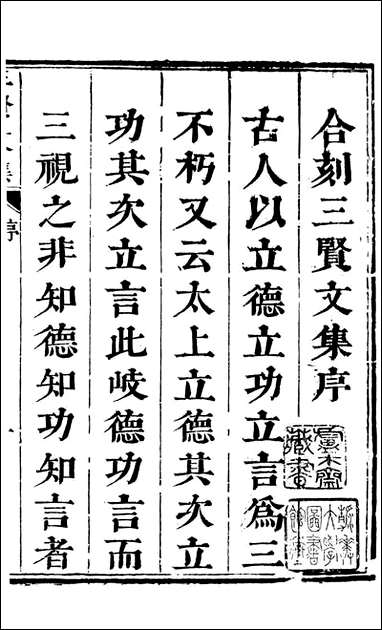 合刻三賢文集序
古人以立德立功立言為三
不朽又云太上立德其次立
功其次立言此岐德功言而
三視之非知德知功知言者
序
藏書
大學
圖書